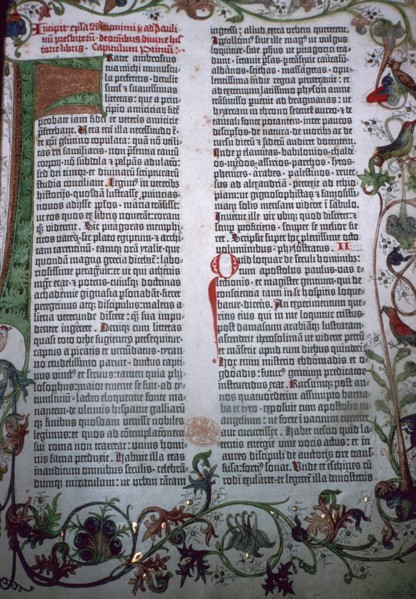 Incipit epistola sancti iheronimi ad paulinum
presbiterum de omnibus divine historie
libris. Capitulum primum.
Frater ambrosius
michi munuscula
tua perferens · detulit
simul et suavissimas
litteras: que a principio
amicitiar
probate iam fidei et veteris amicicie
preferebant. Vera enim illa necessitudo ē ·
et xpi glutino copulata: quā nō utilitas
rei familiaris · nō presentia tantum
corporū · nō subdola et palpās adulacio ·
sed dei timor · et divinarū scripturarū
studia conciliant. Legimus in veteribus
historijs · quosdā lustrasse provincias ·
novos adijsse populos · maria transisse:
ut eos quos ex libris noverant: coram
quoque viderent. Sic pitagoras memphiticos
vates · sic plato egiptum · et architam
tarentinū · eandemque oram ytalie · que
quondā magna grecia dicebatur: laboriosissime
peragravit: ut qui athenis
mgr erat · et potens · cuiusque doctrinas
achademie gignasia psonabāt · fieret
peregrinus atque discipulus: malens aliena
verecunde discere: quam sua impudenter
ingerere. Denique cum litteras
quasi toto orbe fugientes persequitur ·
captus a piratis et venūdatus · tyranno
crudelissimo paruit · ductus captivus
vinctus et servus: tamen quia philosophus ·
maior emente se fuit · ad tytumlivium ·
lacteo eloquentie fonte manantem ·
de ultimis hispanie galliarumque
finibus · quosdam venisse nobiles
legimus: et quos ad cōtemplacionem
sui roma non traxerat: unius hominis
fama perduxit. Habuit illa etas
inauditum omnibus seculis · celebrandumque
miraculum: ut urbem tantam
ingressi: aliud extra urbem quererent.
Apollonius sive ille magus ut vulgus
loquitur · sive phus ut pitagorici tradunt ·
intravit psas · ptrāsivit caucasū ·
albanos · scithas · massagetas · opulentissima
indie regna penetravit: et
ad extremum latissimo physon amne
transmisso puenit ad bragmanas: ut
hyarcam in throno sedentē aureo · et de
tantali fonte potantem · inter paucos
discipulos · de natura · de moribus ac de
cursu dierū et siderū audiret docentem.
Inde p elamitas · babilonios · chaldeos ·
medos · assirios · parthos · syros ·
phenices · arabes · palestinos · reversus
ad alexandriā · perrexit ad ethiopiam:
ut gignosophistas et famosissimam
solis mensam videret in sabulo.
Invenit ille vir ubique quod disceret: et
semp proficiens · semper se melior fieret.
Scripsit super hoc plenissime octo
voluminibus · phylostratus. II
Quid loquar de seculi hominibus:
cum apostolus paulus · vas electionis ·
et magister gentium · qui de
consciencia tanti in se hospitis loquebatur ·
dicens. An experimentum queritis
eius qui in me loquitur cristus.
Post damascum arabiāque lustratam:
ascendit iherosolimā ut videret petrū
et māsit apud eum diebus quindecim.
Hoc enim misterio ebdomadis et ogdoadis:
futurus gentium predicator
instruendus erat. Rursumque post annos
quatuordecim assumpto barnaba
et tyto · exposuit cum apostolis
evangelium: ne forte in vacuum curreret
aut cucurrisset. Habet nescio quid latentis
energie · vive vocis actus: et in
aures discipuli de auctoris ore transfusa:
forcius sonat. Unde et eschines cū
rodi exularet · et legeretur illa demostenis